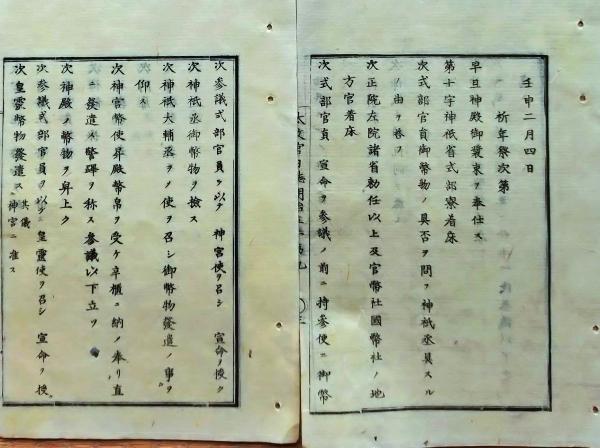 壬申二月四日
祈年祭次第
早旦神殿御装束ヲ奉仕ス
第十字神祇省式部寮着床
次式部官員御幣物ノ具否ヲ問フ神祇丞具スル
ノ由ヲ答フ
次正院左院諸省勅任以上及官幣社國幣社ノ地
方官着床
次式部官員 宣命ヲ参議ノ前ニ持参便ニ御幣
次参議式部官員ヲ以テ 神宮使ヲ召シ 宣命ヲ授ク
次神祇丞御幣物ヲ撿ス
次神祇大輔丞ヲシテ使ヲ召シ御幣物發遣ノ事ヲ
仰ス
次神宮幣使昇殿幣帛ヲ受ケ辛櫃ニ納メ奉リ直
ニ發遣ス警蹕ヲ称ス参議以下立ツ
次神殿ノ幣物ヲ舁上ク
次参議式部官員ヲ以テ 皇霊使ヲ召シ 宣命ヲ授
次皇霊幣物發遣ス 其儀神宮ニ准ス